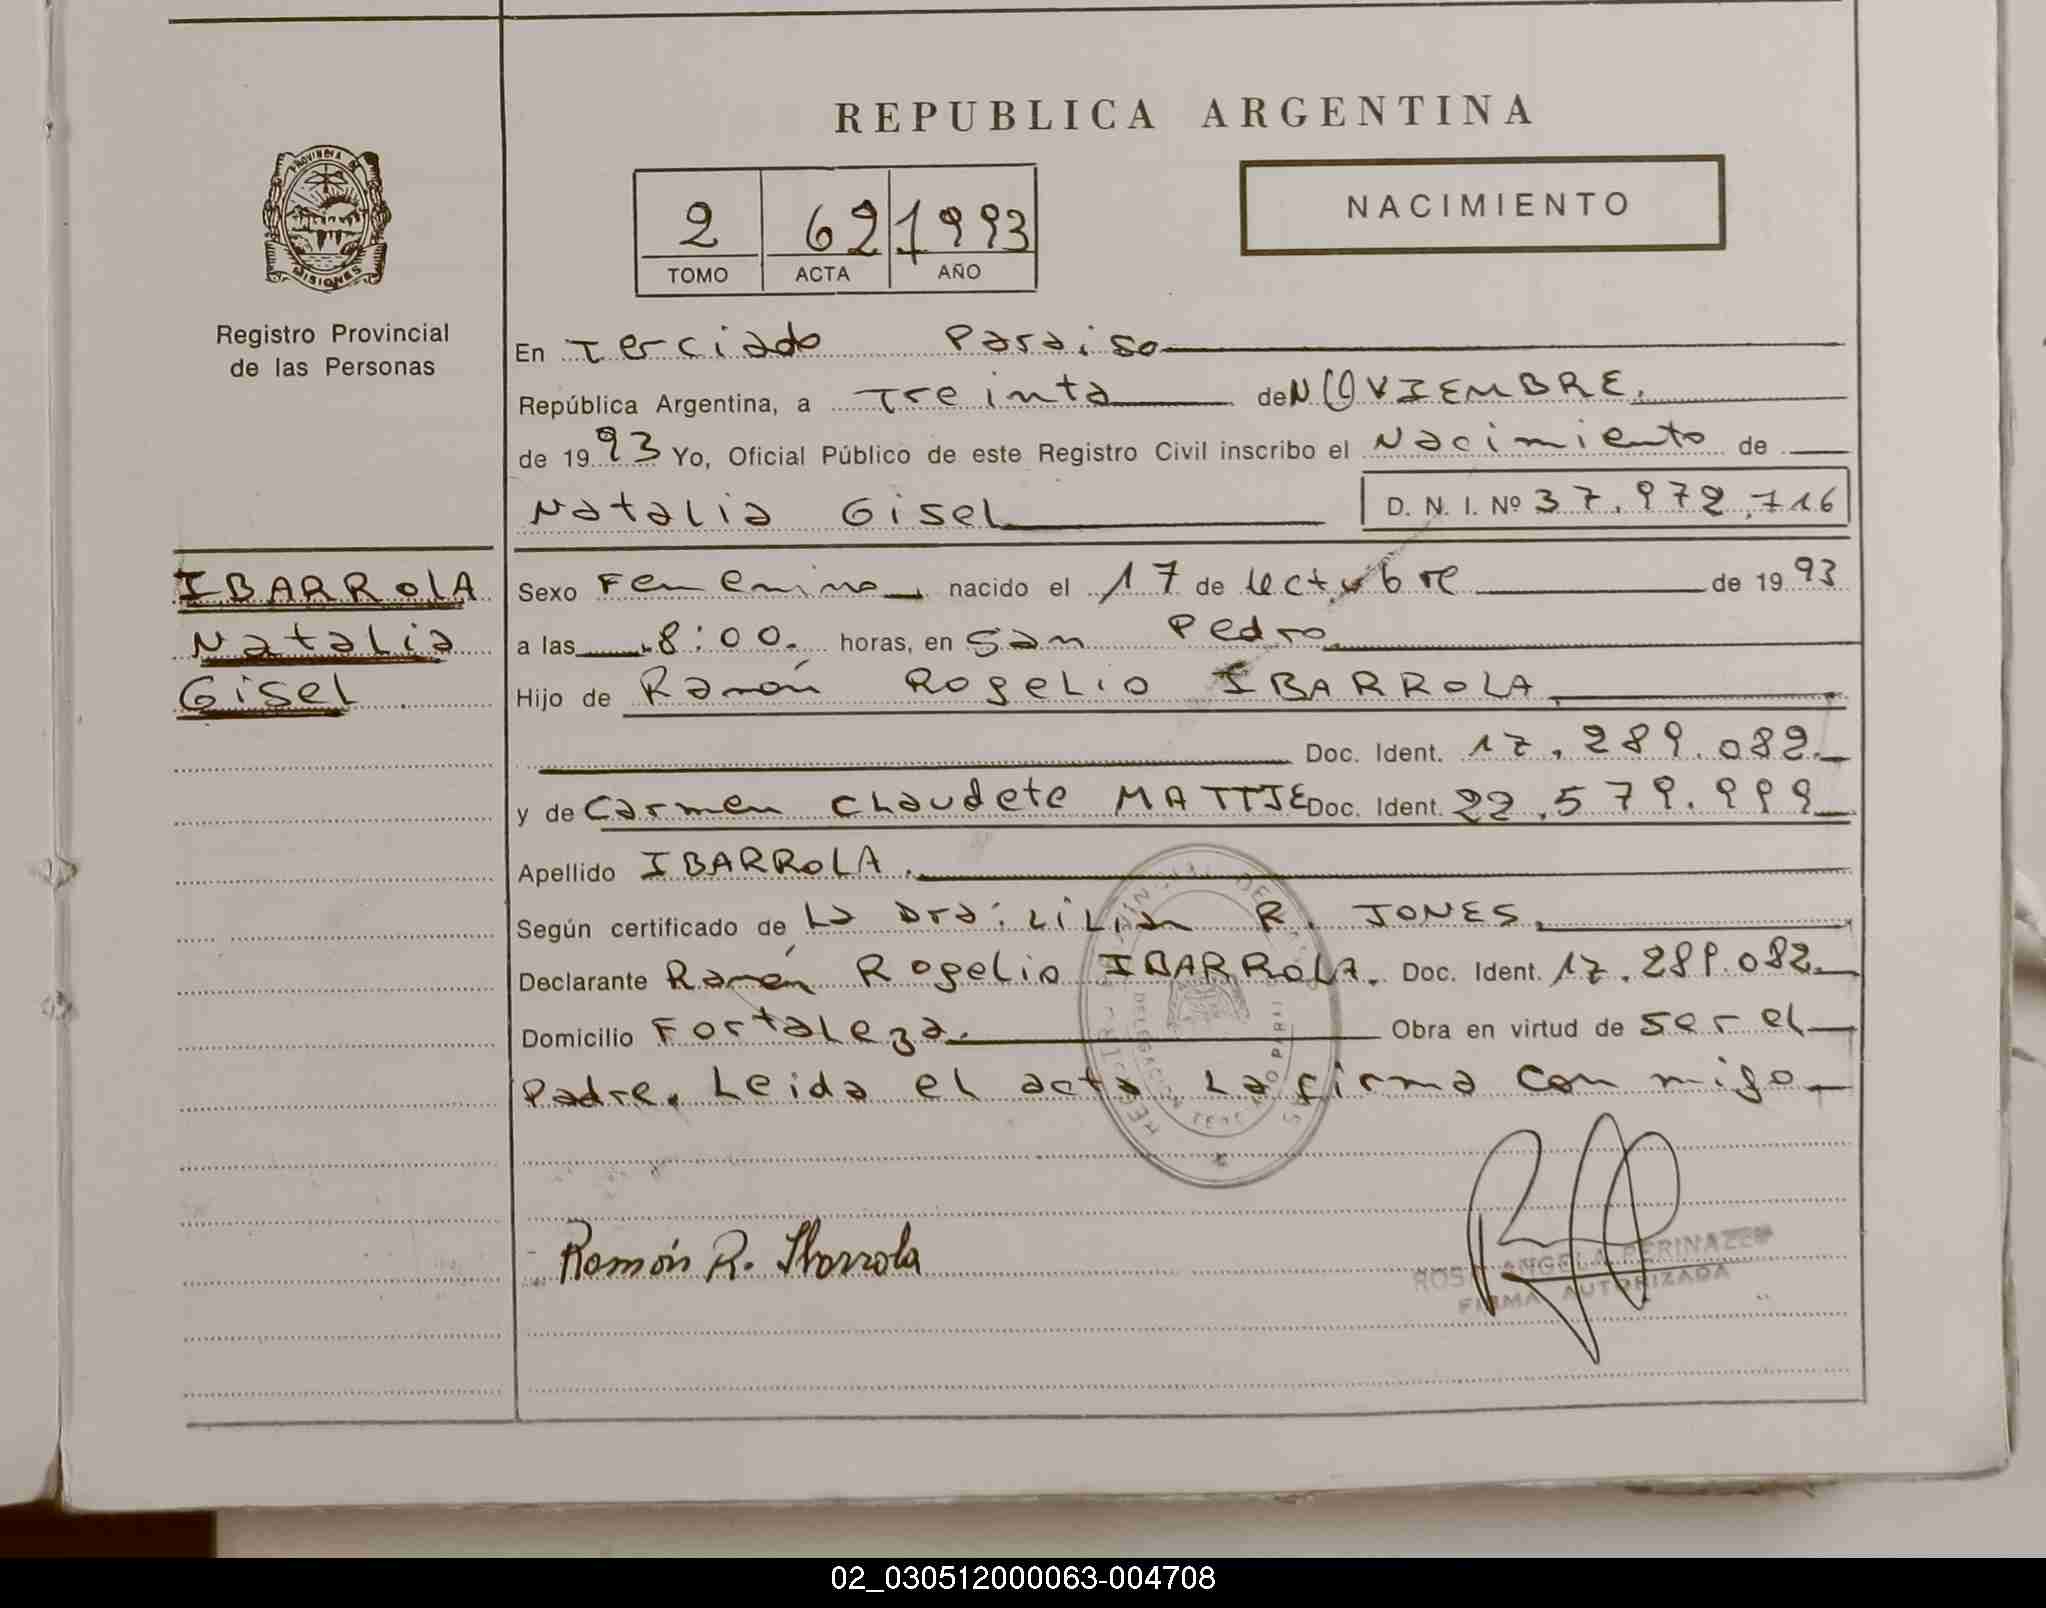 REPUBLICA ARGENTINA
PROVINCIA DE
MISIONES
Registro Provincial
de las Personas
2 62 1993
TOMO ACTA AÑO
NACIMIENTO
En Terciado Paraiso
República Argentina, a Treinta de NOVIEMBRE.
de 1993 Yo, Oficial Público de este Registro Civil inscribo el Nacimiento de
Natalia Gisel D. N. I. Nº 37.972.716
IBARROLA
Natalia
Gisel
Sexo Femenino nacido el 17 de octubre de 1993
a las 8:00. horas, en San Pedro
Hijo de Ramón Rogelio IBARROLA
Doc. Ident. 17.289.082.
y de Carmen Claudete MATTJE Doc. Ident. 22.579.999
Apellido IBARROLA.
Según certificado de La Dra: LiLian R. JONES.
Declarante Ramón Rogelio IBARROLA. Doc. Ident. 17.289.082.
Domicilio Fortaleza. Obra en virtud de ser el
Padre. Leida el acta La firma con migo
Ramón R. Ibarrola
ROSA ANGELA PERINAZZO
FIRMA AUTORIZADA
02_030512000063-004708